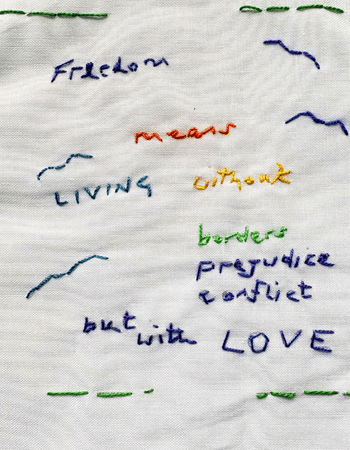 Freedom
means
LIVING without
borders
prejudice
conflict
but with LOVE